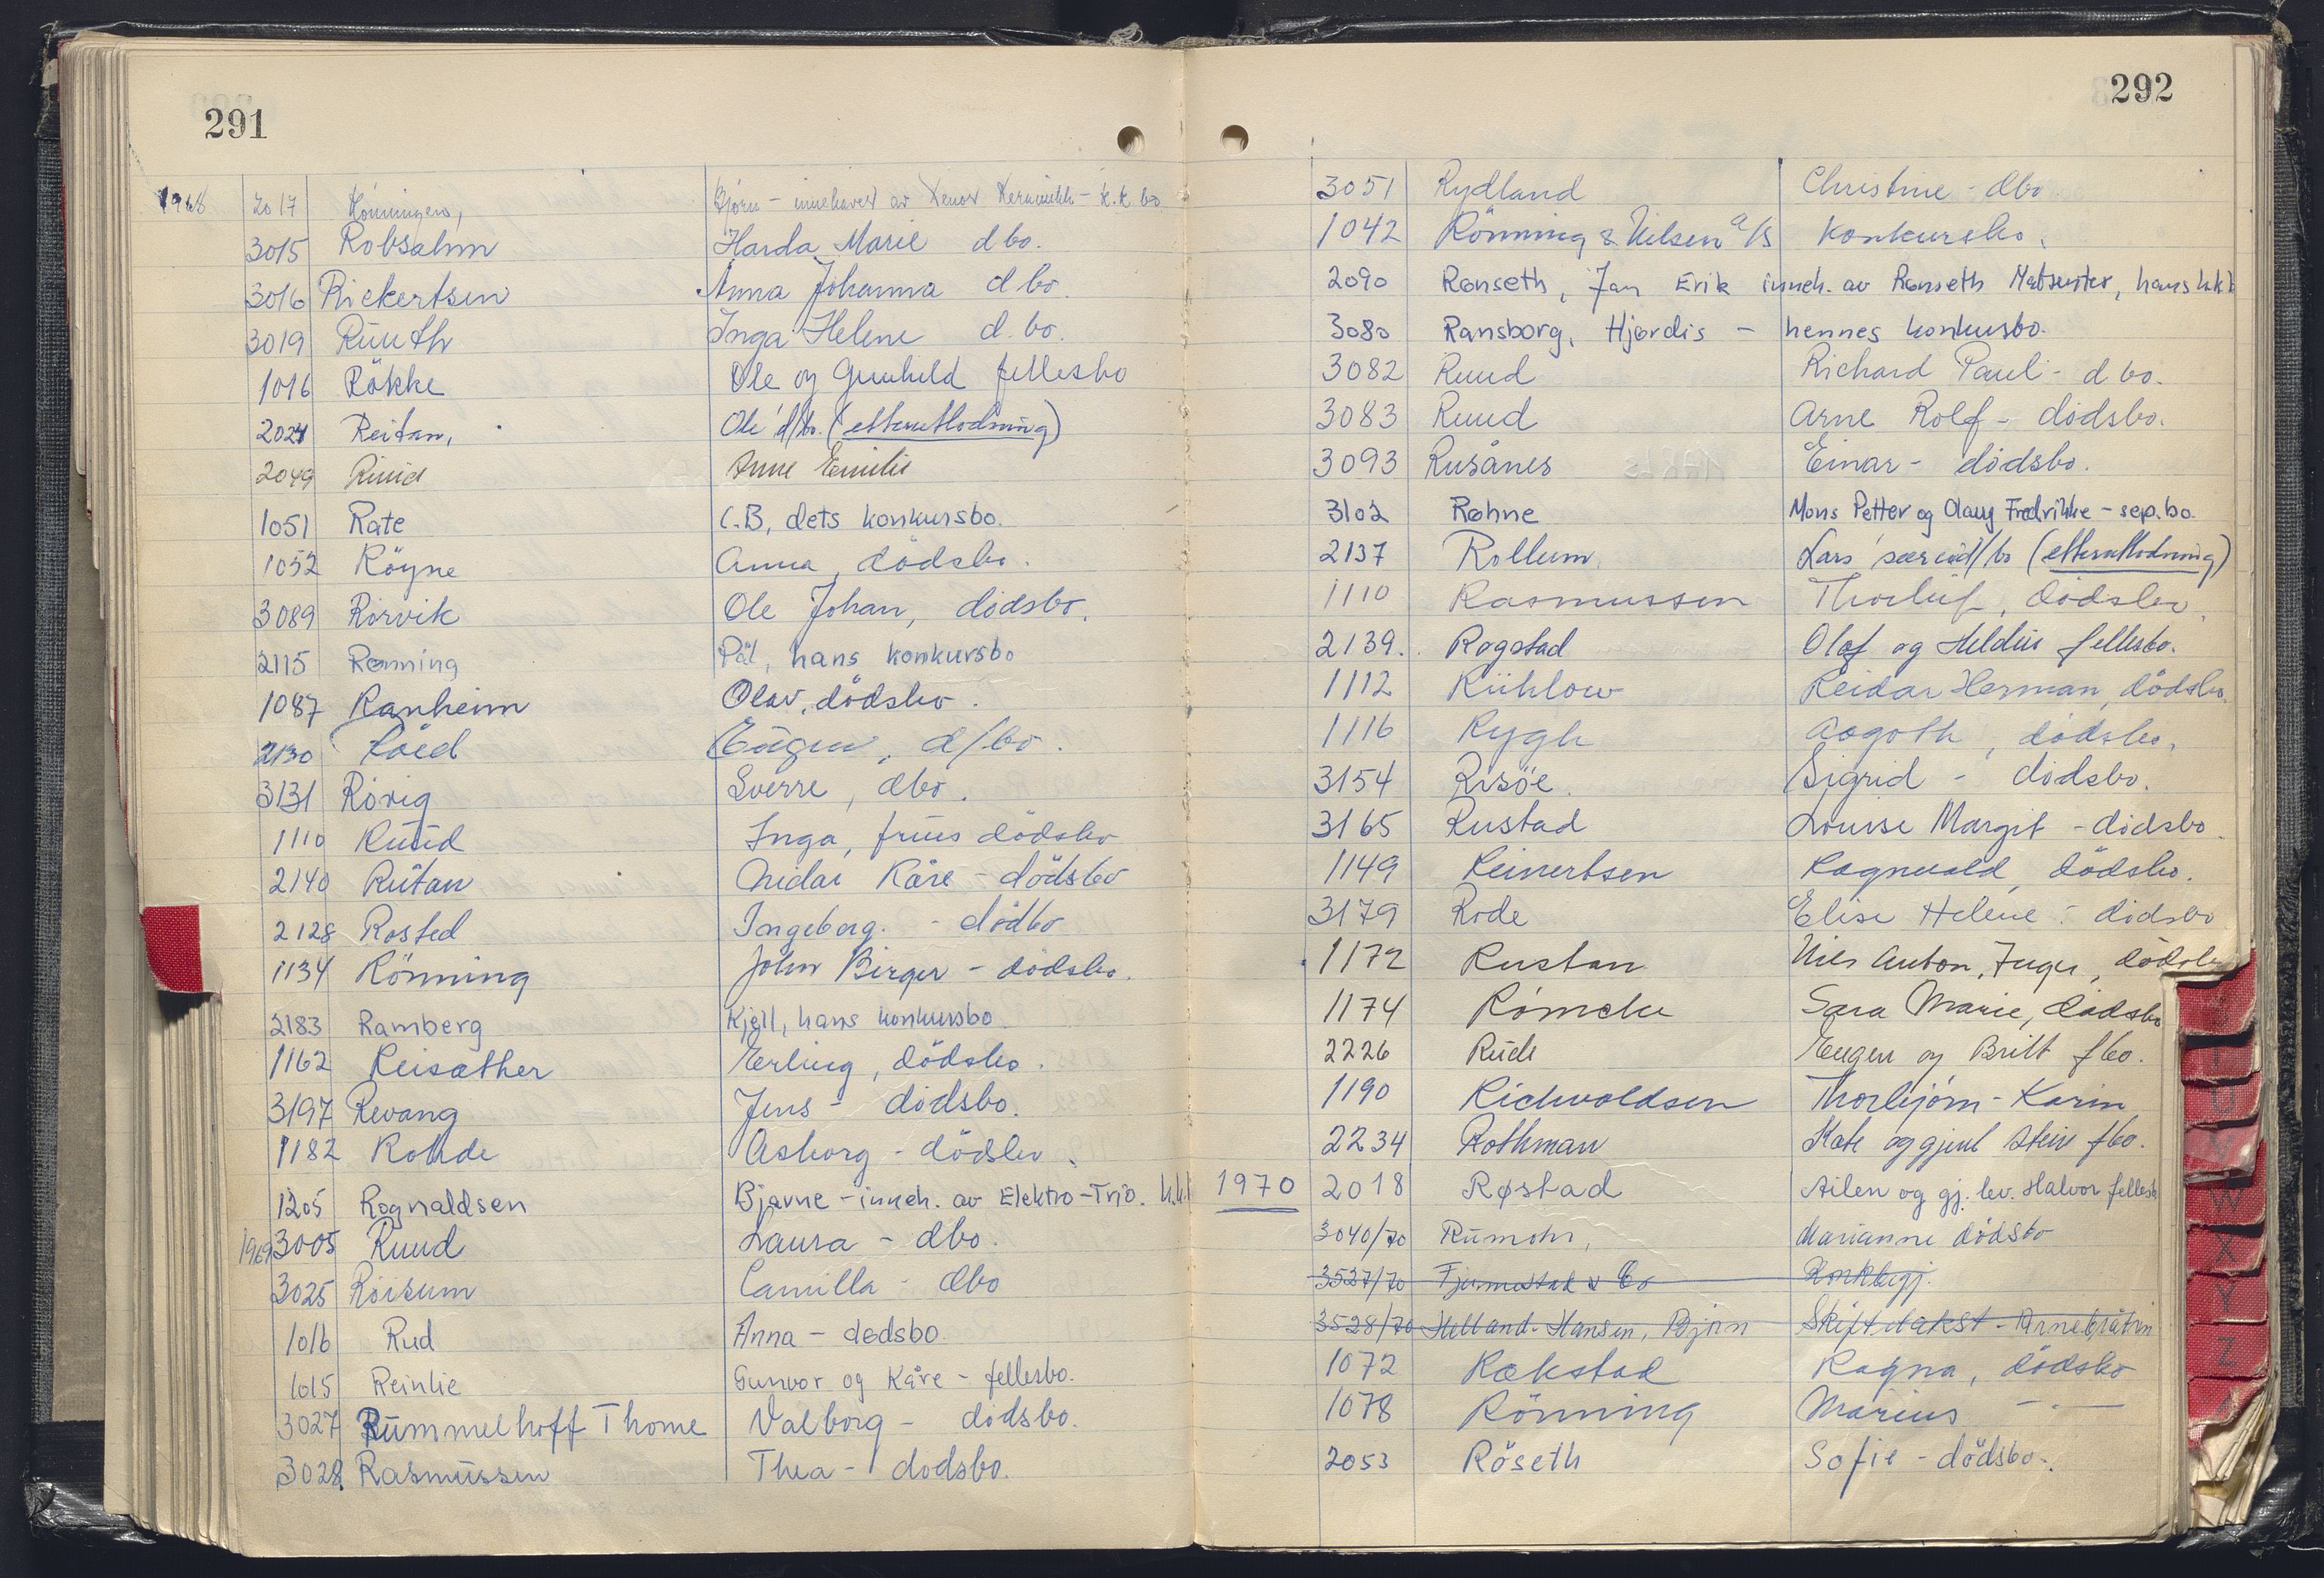 291
1968 2017 Rönningen, Björn - innehaver av Xenox Keramikk - k.k bo
3015 Robsahm Harda Marie dbo.
3016 Rickertsen Anna Johanna dbo.
3019 Ruuth Inga Helene d.bo.
1016 Rökke Ole og Gunhild fellesbo
2021 Reitan, Ole d/bo. (etterutlodning)
2049 Ruud Anne Emilie
1051 Rate C.B, dets konkursbo.
1052 Röyne Anna, dödsbo.
3089 Rörvik Ole Johan, dödsbo.
2115 Rønning Pål, hans konkursbo
1087 Ranheim Olav, dödsbo.
2130 Röed Eugen, d/bo.
3131 Rörig Sverre, dbo.
1110 Ruud Inga, frues dödsbo
2140 Reitan Nidar Kåre - dödsbo
2128 Rosted Ingeborg. - dödbo
1134 Rönning John Birger - dödsbo.
2183 Ramberg Kjell, hans konkursbo
1162 Reisæther Erling, dödsbo.
3197 Revang Jens - dödsbo.
1182 Rohde Asborg - dödsbo.
1205 Rognaldsen Bjarne - inneh. av Elektro-Trio. k.k.
1969 3005 Ruud Laura - dbo.
3025 Röisum Camilla - dbo
1016 Rud Anna - dødsbo
1015 Reinlie Gunvor og Kåre - fellesbo.
3027 Rummelhoff Thome Valborg - dödsbo.
3028 Rasmussen Thea - dödsbo.
292
3051 Rydland Christine - dbo
1042 Rönning & Nilsen a/s konkursbo.
2090 Rønseth, Jan Erik inneh. av Rønseth Matsenter, hans k.k.b
3080 Ransborg, Hjørdis - hennes konkursbo.
3082 Ruud Richard Pauli - dbo.
3083 Ruud Arne Rolf - dödsbo.
3093 Rusånes Einar - dödsbo.
3102 Røhne Mons Petter og Olaug Fredrikke - sep.bo.
2137 Rollum Lars særeid/bo (etterutlodning)
1110 Rasmussen Thorleif, dödsbo,
2139. Rogstad Olaf og Heldis fellesbo.
1112 Rühlow Reidar Herman, dödsbo.
1116 Rygh Aagoth, dödsbo,
3154 Risöe. Sigrid - dödsbo.
3165 Rustad Louise Margit - dödsbo.
1149 Reinertsen Ragnvald, dödsbo.
3179 Rode Elise Helene - dödsbo
1172 Rustan Nils Anton, Inger, dödsbo
1174 Römcke Sara Marie, dödsbo
2226 Rude Eugen og Britt fbo.
1190 Richvoldsen Thorbjörn - Karin
2234 Rothman Kate og gjenl Stein fbo.
1970 2018 Røstad Ailen og gj. lev. Halvor fellesb
3040/70 Rumohr, Marianne dödsbo
3527/70 Fjermestad & Co Konkbegj.
3528/70 Helland-Hansen, Björn Skiftetakst - Arnebråten
1072 Rækstad Ragna, dödsbo
1078 Rönning Marius - " -
2053 Röseth Sofie - dödsbo.
T
U
V
W
X
Y
Z